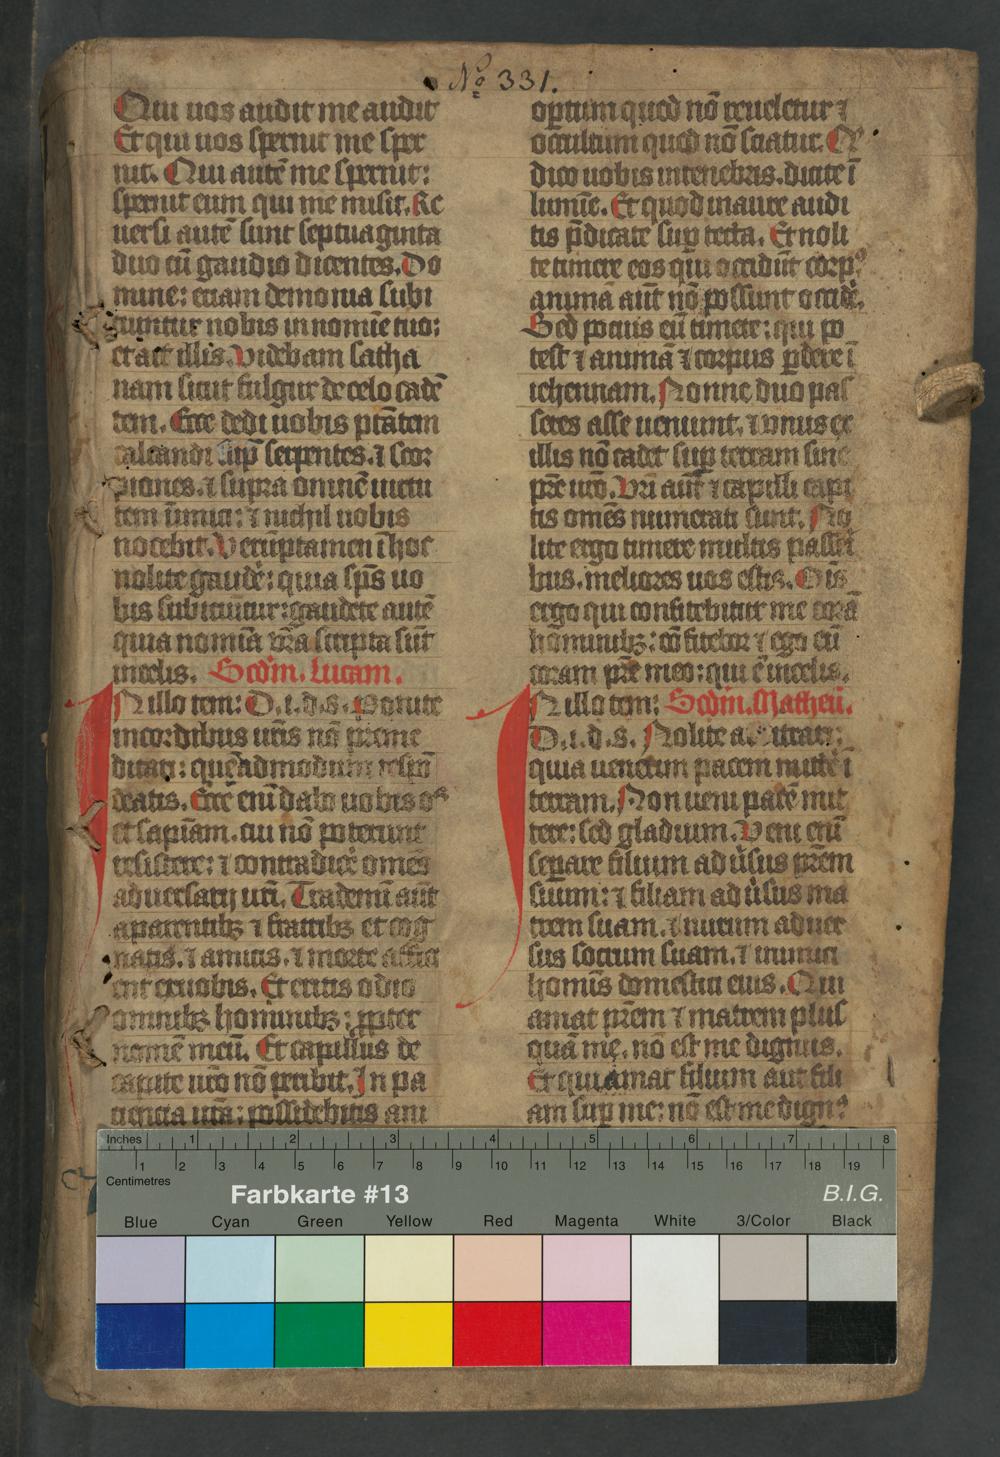 No 331.
Qui uos audit me audit
Et qui uos spernit me sper
nit. Qui autē me spernit:
spernit eum qui me misit. Re
uersi autē sunt septuaginta
duo cū gaudio dicentes. Do
mine: etiam demonia subi
ciuntur nobis in nomīe tuo:
et ait illis. Videbam satha
nam sicut fulgur de celo cadē
tem. Ecce dedi uobis ptātem
calcandi sup̄ serpentes. ⁊ scor
piones. ⁊ supra omnē uirtu
tem inimici: ⁊ nichil uobis
nocebit. Verūptamen ī hoc
nolite gaudē: quia sp̄s uo
bis subiciūtur: gaudete autē
quia nomīa vr̄a scripta sūt
in celis. Scdm̄. Lucam.
In illo tem: D. i. d. s. Ponite
in cordibus ur̄is nō preme
ditari: quēadmodum respō
deatis. Ecce enī dabo uobis os
et sapīam. cui nō poterunt
resistere: ⁊ contradicē omēs
aduersarij ur̄i. Trademī aūt
a parentibꝫ ⁊ fratribꝫ et cog
natis. ⁊ amicis. ⁊ morte affici
ent ex uobis. Et eritis odio
omnibꝫ hominibꝫ: ꝓpter
nomē meū. Et capillus de
capite ur̄o nō peribit. In pa
tiencia ur̄a: possidebitis ani
optum quod nō reueletur ⁊
occultum quod nō sciatur. Qđ
dico uobis in tenebris. dicite ī
lumīe. Et quod in aure audi
tis p̄dicate sup tecta. Et noli
te timere eos qui occidūt corpꝰ
animā aūt nō possunt occidē.
Sed potius eū timete: qui po
test ⁊ animā ⁊ corpus ꝑdere ī
iehennam. Nonne duo pas
seres asse ueniunt. ⁊ vnus ex
illis nō cadet sup terram sine
pr̄e ur̄o. Vr̄i aūt ⁊ capilli capi
tis omēs numerati sunt. No
lite ergo timere multis passeri
bus. meliores uos estis. Oīs
ergo qui confitebitur me corā
hominibꝫ: cōfitebor ⁊ ego eū
coram pr̄e meo: qui ē in celis.
In illo tem: Scdm̄. Matheū.
D. i. d. s. Nolite arbitrari:
quia uenerim pacem mittē ī
terram. Non ueni pacē mit
tere: sed gladium. Veni enī
separe filium aduīsus pr̄em
suum: ⁊ filiam aduīsus ma
trem suam. ⁊ nurum aduer
sus socrum suam. ⁊ inimici
homīs domestici eius. Qui
amat pr̄em ⁊ matrem plus
quā me. nō est me dignus.
Et qui amat filium aut fili
am sup me: nō est me dignꝰ
Inches 1 2 3 4 5 6 7 8
Centimetres 1 2 3 4 5 6 7 8 9 10 11 12 13 14 15 16 17 18 19
Farbkarte #13 B.I.G.
Blue Cyan Green Yellow Red Magenta White 3/Color Black